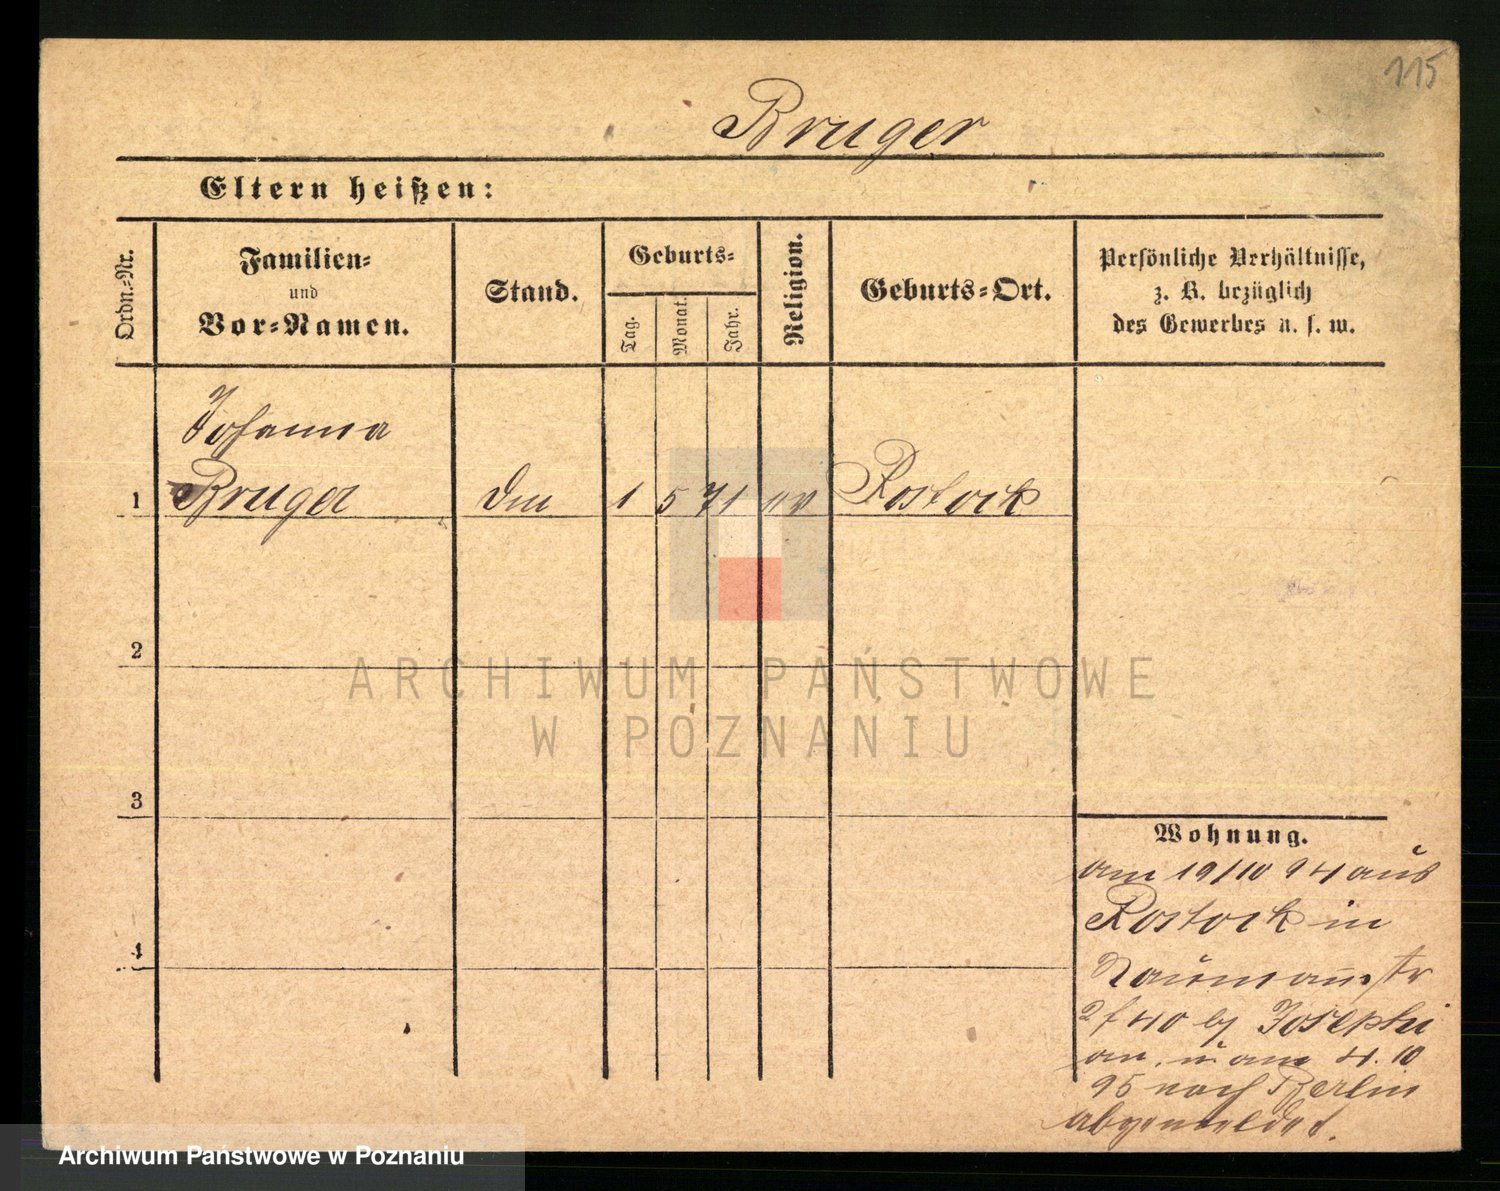 115
Bruger
Eltern heißen:
Ordn.-Nr.
Familien-
und
Vor-Namen.
Stand.
Geburts-
Tag.
Monat.
Jahr.
Religion.
Geburts-Ort.
Persönliche Verhältnisse,
z. B. bezüglich
des Gewerbes u. s. w.
Johanna
1 Bruger 1 5 71 ev Rostock
2
3
4
Wohnung.
am 19/10 94 aus
Rostock in
Naumannstr
40 Josephi
an, u am 4. 10
95 nach Berlin
abgemeldet.
ARCHIWUM PAŃSTWOWE
W POZNANIU
Archiwum Państwowe w Poznaniu